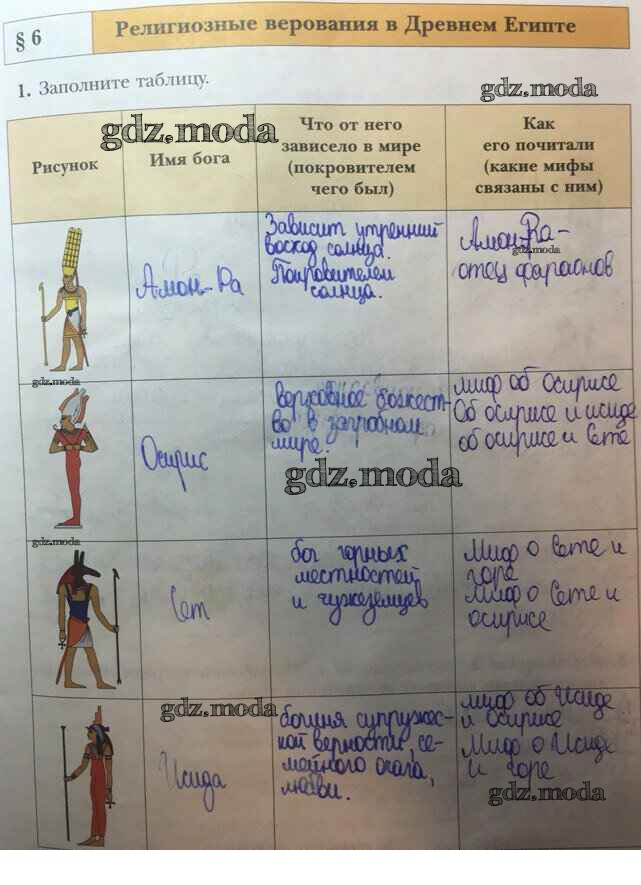 § 6
Религиозные верования в Древнем Египте
1. Заполните таблицу.
gdz.moda
gdz.moda
Рисунок
Имя бога
Что от него
зависело в мире
(покровителем
чего был)
Как
его почитали
(какие мифы
связаны с ним)
Амон-Ра
Зависит утренний
восход солнца.
Покровителем
солнца.
Амон-Ра-
gdz.moda
отец фараонов
gdz.moda
Осирис
верховное божест-
во в загробном
мире.
миф об Осирисе
Об осирисе и исиде
об осирисе и Сете
gdz.moda
gdz.moda
Сет
бог горных
местностей
и чужеземцев
Миф о Сете и
горе
Миф о Сете и
осирисе
gdz.moda
Исида
богиня супружес-
кой верности, се-
мейного очага,
любви.
миф об Исиде
и Осирисе
Миф о Исиде
и горе
gdz.moda